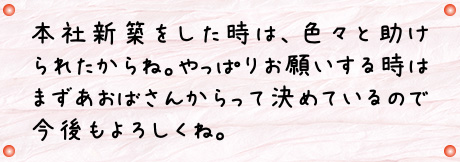 本社新築をした時は、色々と助け
られたからね。やっぱりお願いする時は
まずあおばさんからって決めているので
今後もよろしくね。